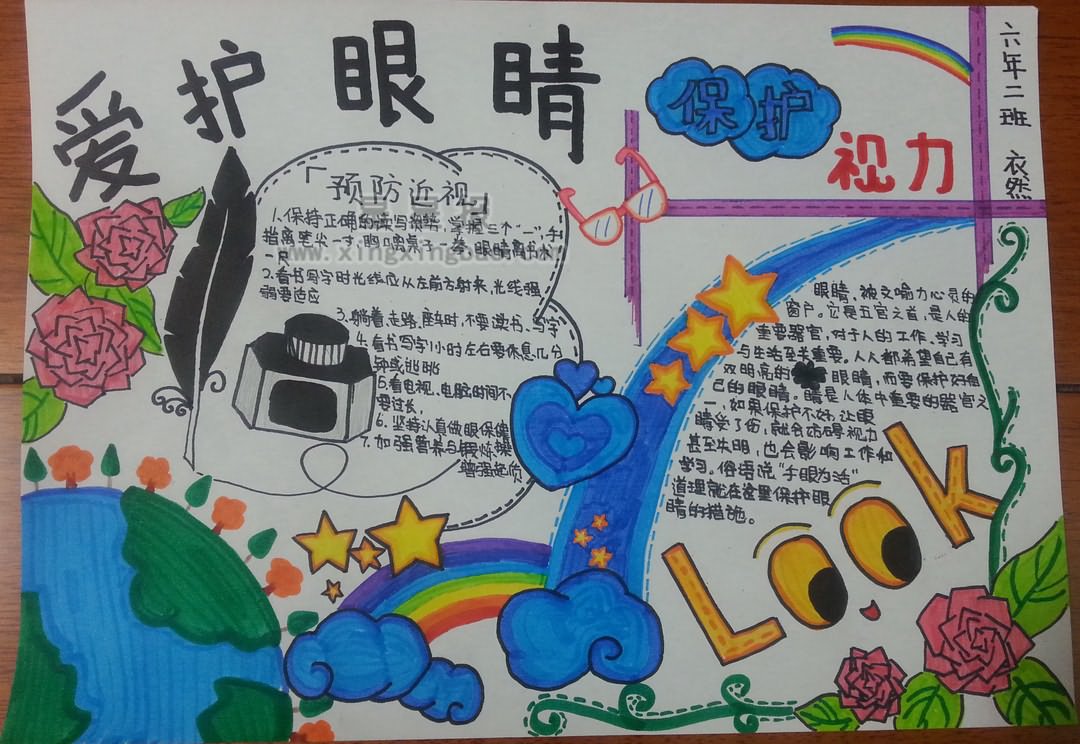 爱护眼睛
保护
视力
六年二班 衣然
「预防近视」
1.保持正确的读写姿势,掌握三个"一",手
指离笔尖一寸,胸口离桌子一拳,眼睛离书本
一尺
2.看书写字时光线应从左前方射来,光线强
弱要适应
3.躺着、走路、座车时,不要读书、写字
4.看书写字1小时左右要休息几分
钟或眺眺
5.看电视、电脑时间不
要过长,
6.坚持认真做眼保健
7.加强营养与锻炼操
增强体质
眼睛,被文喻为心灵的
窗户。它是五官之首,是人的
重要器官,对于人的工作、学习
与生活至关重要。人人都希望自己有
双明亮的 眼睛,而要保护好自
己的眼睛。睛是人体中重要的器官之
一,如果保护不好,让眼
睛受了伤,就会妨碍视力
甚至失明,也会影响工作和
学习。俗语说"手眼为活"
道理就在这里保护眼
睛的措施。
Look
www.xingxing